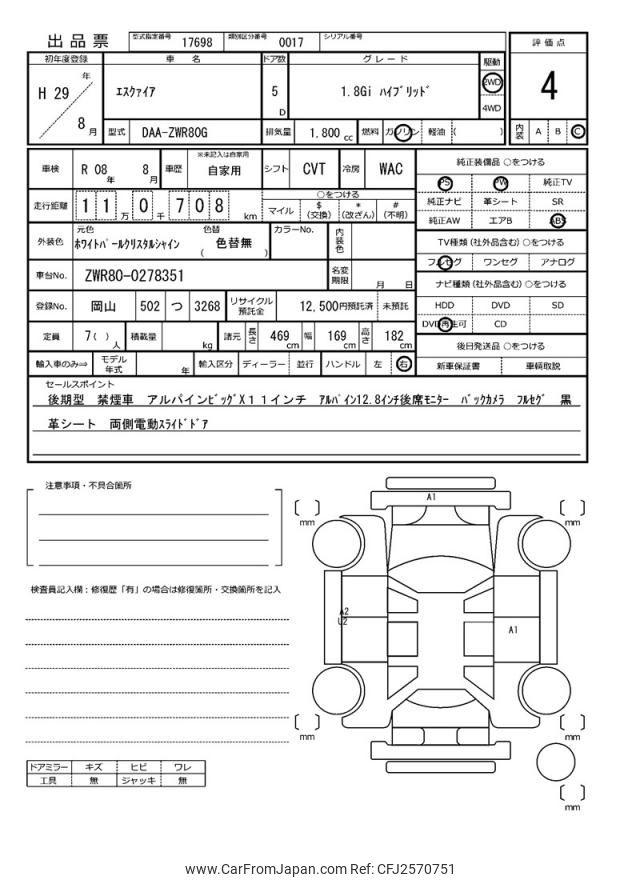 出品票 型式指定番号 17698 類別区分番号 0017 シリアル番号
初年度登録 車 名 ドア数 グレード 駆動 評価点
H 29 年 8 月 エスクァイア 5 D 1.8Gi ハイブリッド 2WD 4WD 4
型式 DAA-ZWR80G 排気量 1,800 cc 燃料 ガソリン 軽油 ( ) 内装 A B C
車検 R 08 年 8 月 車歴 ※未記入は自家用 自家用 シフト CVT 冷房 WAC
純正装備品 ○をつける
PS PW 純正TV
純正ナビ 革シート SR
純正AW エアB ABS
走行距離 1 1 万 0 千 7 0 8 km ○をつける
マイル $ (交換) * (改ざん) # (不明)
外装色 元色 ホワイトパールクリスタルシャイン 色替 ( 色替無 ) カラーNo. 内装色
TV種類 (社外品含む) ○をつける
フルセグ ワンセグ アナログ
車台No. ZWR80-0278351 名変期限 月 日
ナビ種類 (社外品含む) ○をつける
HDD DVD SD
DVD再生可 CD
登録No. 岡山 502 つ 3268 リサイクル預託金 12,500円預託済 未預託
定員 7 ( ) 人 積載量 kg 諸元 長さ 469 cm 幅 169 cm 高さ 182 cm
後日発送品 ○をつける
新車保証書 車輌取説
輸入車のみ⇒ モデル年式 年 輸入区分 ディーラー 並行 ハンドル 左 右
セールスポイント
後期型 禁煙車 アルパインビッグX11インチ アルパイン12.8インチ後席モニター バックカメラ フルセグ 黒
革シート 両側電動スライドドア
注意事項・不具合箇所
検査員記入欄:修復歴「有」の場合は修復箇所・交換箇所を記入
A1
mm
mm
A2
U2
A1
mm
mm
mm
ドアミラー キズ ヒビ ワレ
工具 無 ジャッキ 無
www.CarFromJapan.com Ref: CFJ2570751